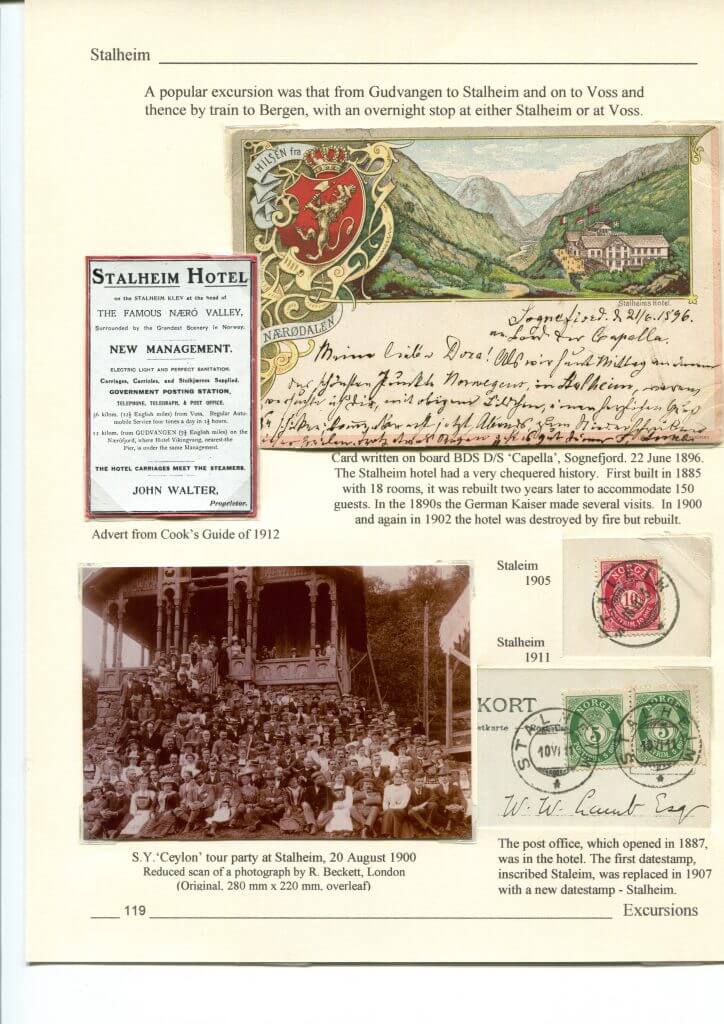 Stalheim
A popular excursion was that from Gudvangen to Stalheim and on to Voss and
thence by train to Bergen, with an overnight stop at either Stalheim or at Voss.
HILSEN fra
NÆRØDALEN
Stalheims Hotel.
Sognefjord. d 21/6. 1896.
an Bord der Capella.
Meine liebe Dora!
STALHEIM HOTEL
on the STALHEIM KLEV at the head of
THE FAMOUS NÆRÓ VALLEY,
Surrounded by the Grandest Scenery in Norway.
NEW MANAGEMENT.
ELECTRIC LIGHT AND PERFECT SANITATION.
Carriages, Carrioles, and Stolkjærres Supplied.
GOVERNMENT POSTING STATION,
TELEPHONE, TELEGRAPH, & POST OFFICE.
36 kilom. (22½ English miles) from Voss. Regular Auto-
mobile Service four times a day in 1½ hours.
12 kilom. from GUDVANGEN (7½ English miles) on the
Næröfjord, where Hotel Vikingvang, nearest the
Pier, is under the same Management.
THE HOTEL CARRIAGES MEET THE STEAMERS.
JOHN WALTER,
Proprietor.
Advert from Cook's Guide of 1912
Card written on board BDS D/S 'Capella', Sognefjord. 22 June 1896.
The Stalheim hotel had a very chequered history. First built in 1885
with 18 rooms, it was rebuilt two years later to accommodate 150
guests. In the 1890s the German Kaiser made several visits. In 1900
and again in 1902 the hotel was destroyed by fire but rebuilt.
Staleim
1905
NORGE
10
Stalheim
1911
KORT
NORGE
5
NORGE
5
STALHEIM
10 VI 11
STALHEIM
10 VI 11
W. W. Lamb Esq
S.Y.'Ceylon' tour party at Stalheim, 20 August 1900
Reduced scan of a photograph by R. Beckett, London
(Original, 280 mm x 220 mm, overleaf)
The post office, which opened in 1887,
was in the hotel. The first datestamp,
inscribed Staleim, was replaced in 1907
with a new datestamp - Stalheim.
119
Excursions